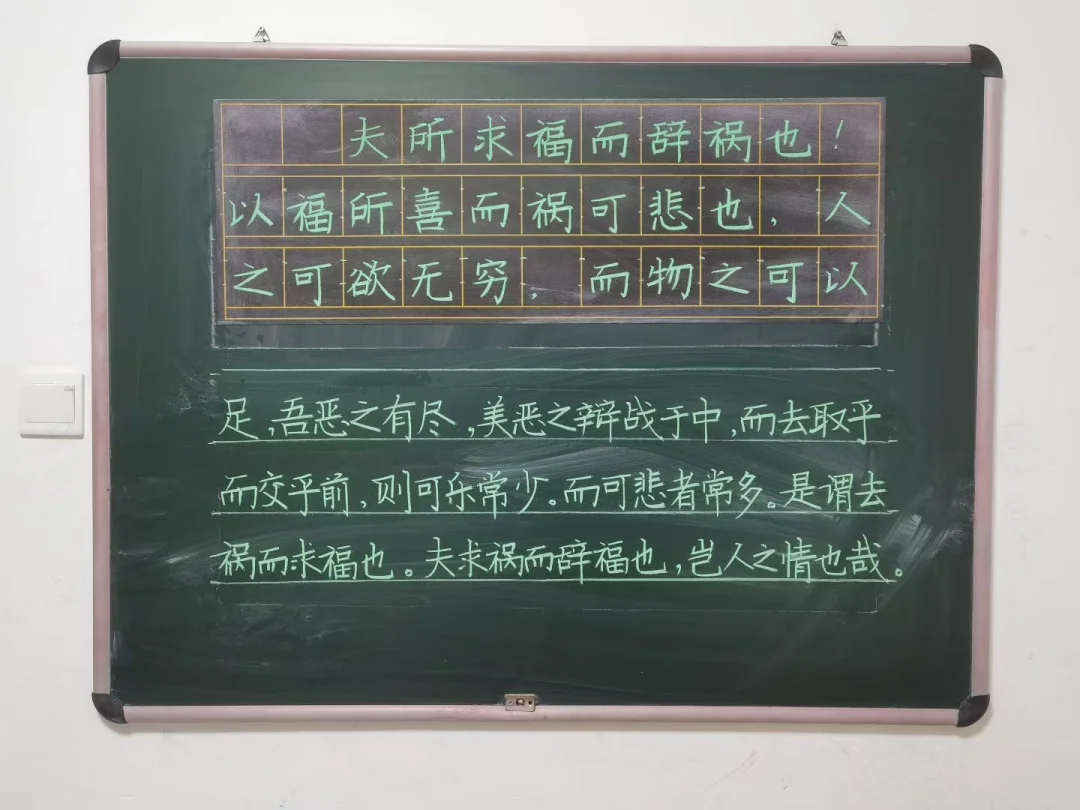 夫所求福而辞祸也！
以福所喜而祸可悲也，人
之可欲无穷，而物之可以
足，吾恶之有尽，美恶之辩战于中，而去取乎
而交乎前，则可乐常少。而可悲者常多。是谓去
祸而求福也。夫求祸而辞福也，岂人之情也哉。